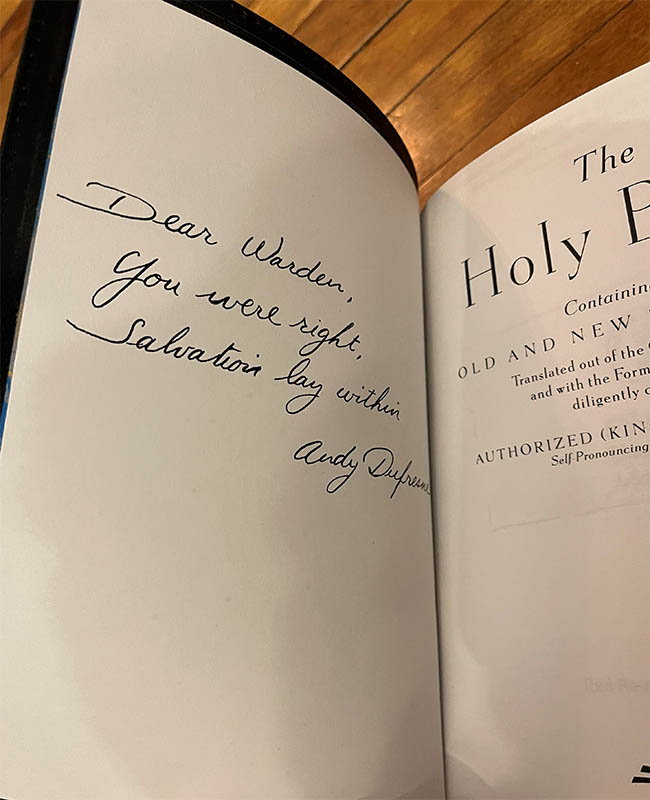 Dear Warden,
You were right,
Salvation lay within
Andy Dufresne
The
Holy
Containing
OLD AND NEW
Translated out of the
and with the Form
diligently
AUTHORIZED (KIN
Self-Pronouncing